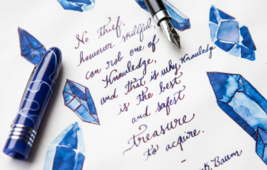 No thief,
however skillful
can rob one of
Knowledge,
and that is why Knowledge
is the best
and safest
treasure
to acquire.
Baum